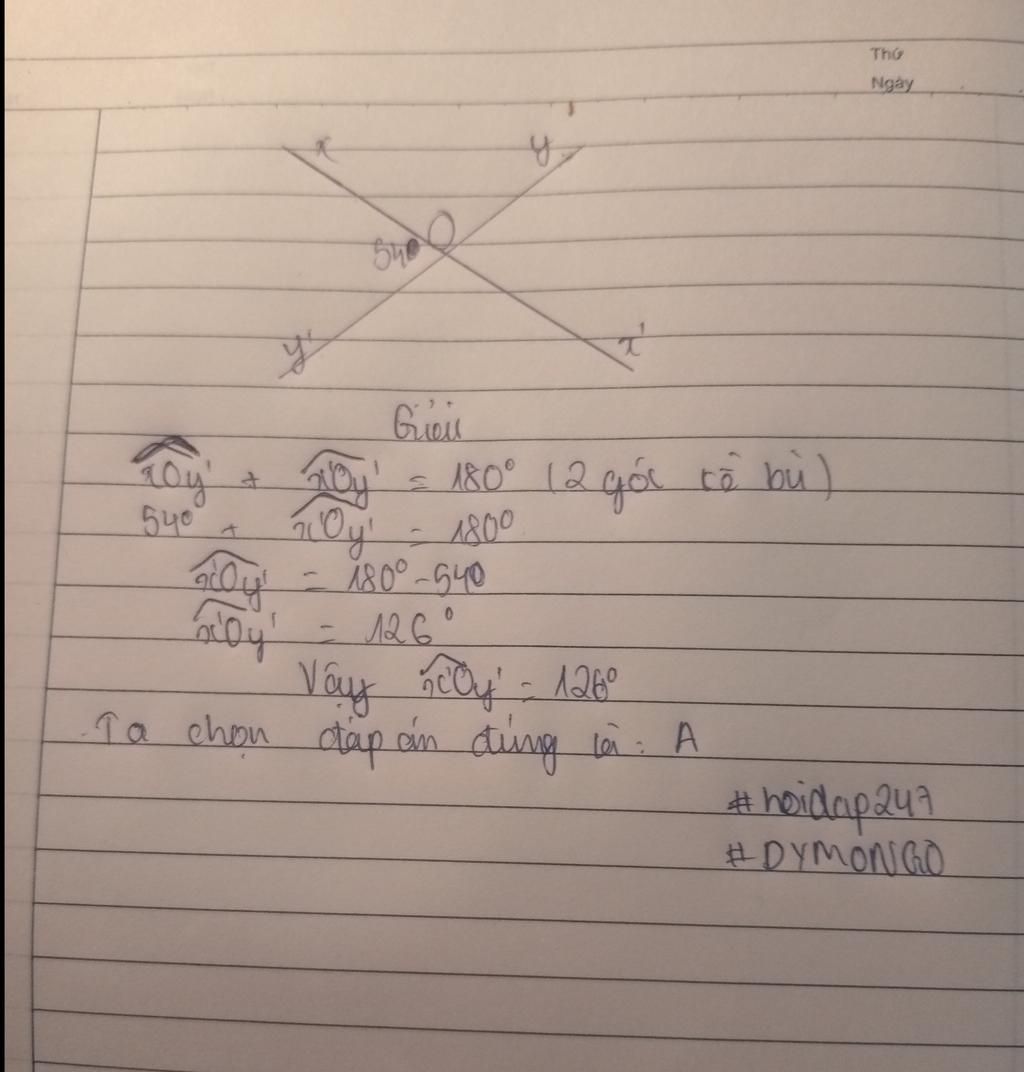 Thứ
Ngày
x y
O
54°
y' x'
Giải
xOy' + x'Oy' = 180° (2 góc kề bù)
54° + x'Oy' = 180°
x'Oy' = 180° - 54°
x'Oy' = 126°
Vậy x'Oy' = 126°
Ta chọn đáp án đúng là: A
#hoidap247
#DYMONGO